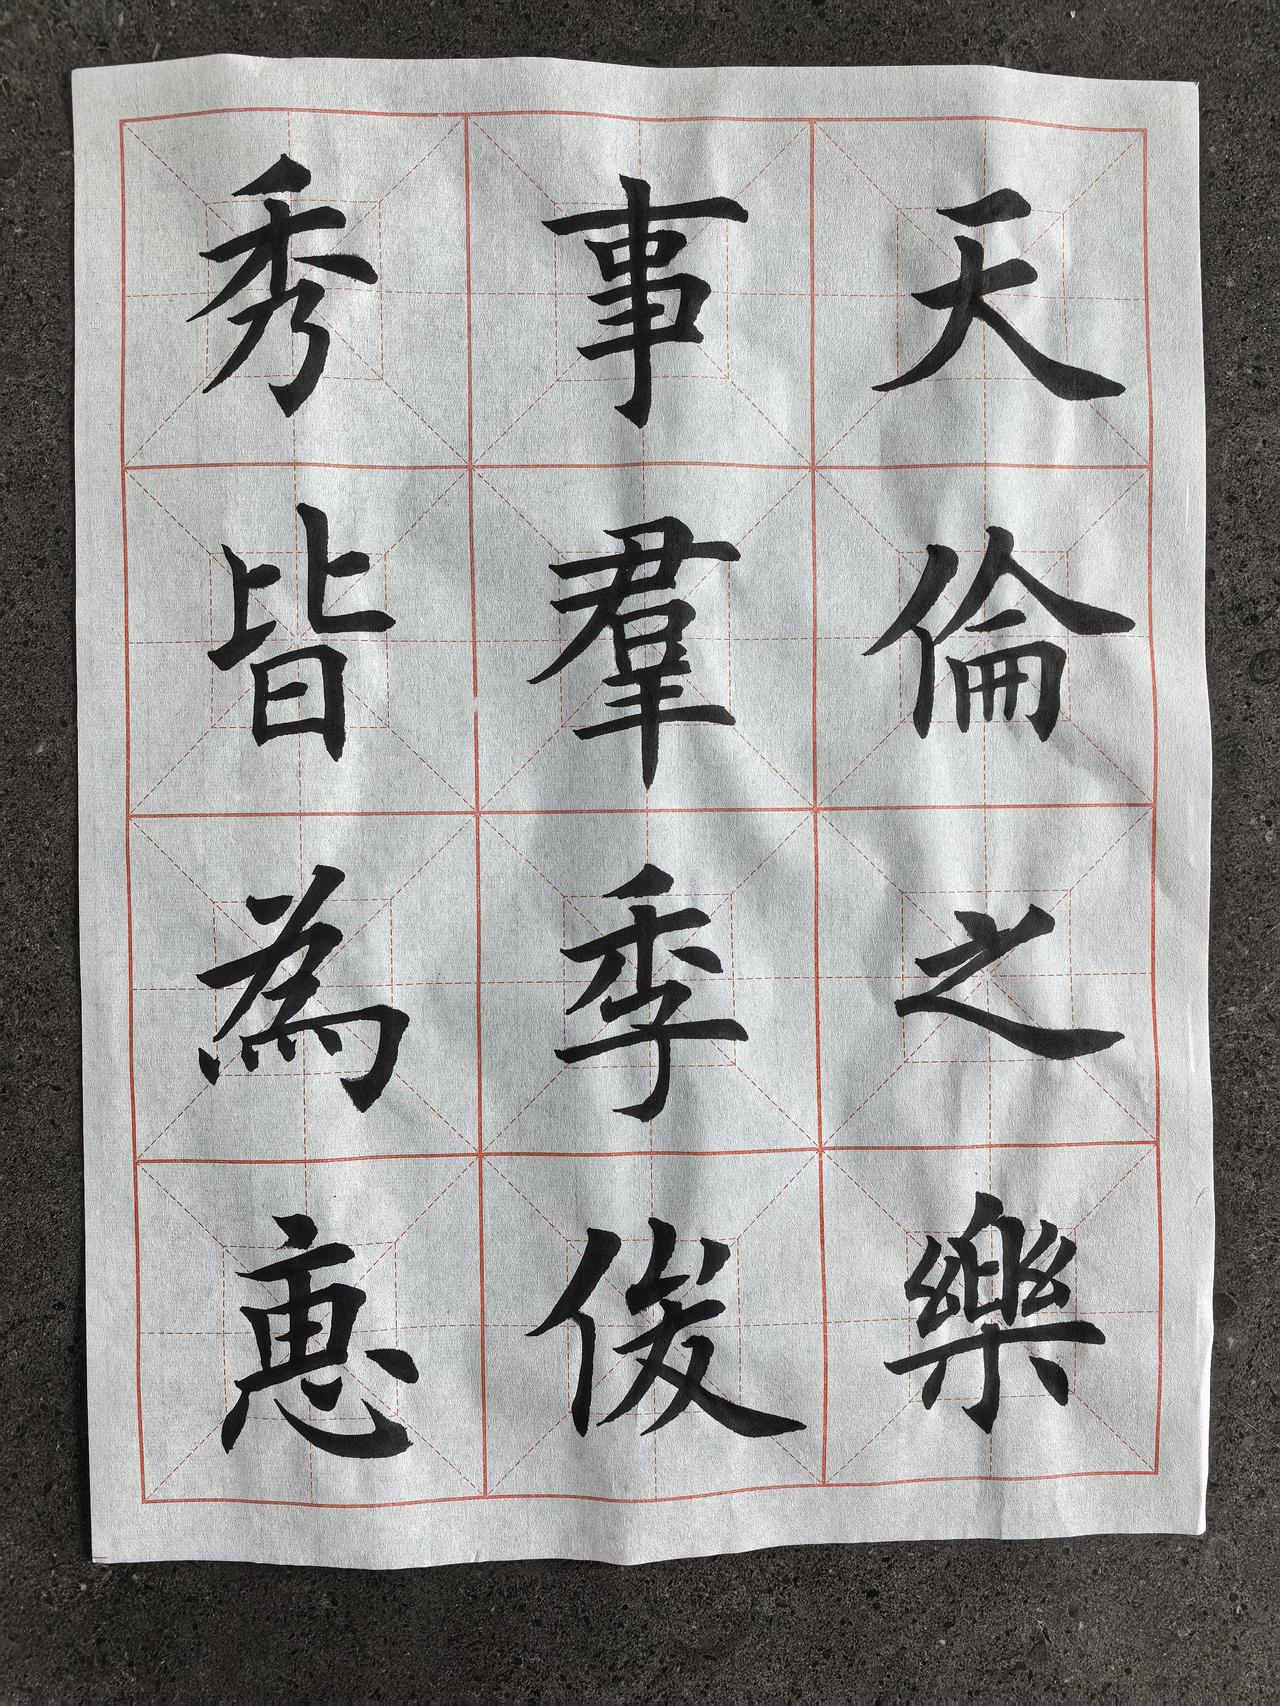 天倫之樂
事羣季俊
秀皆為惠